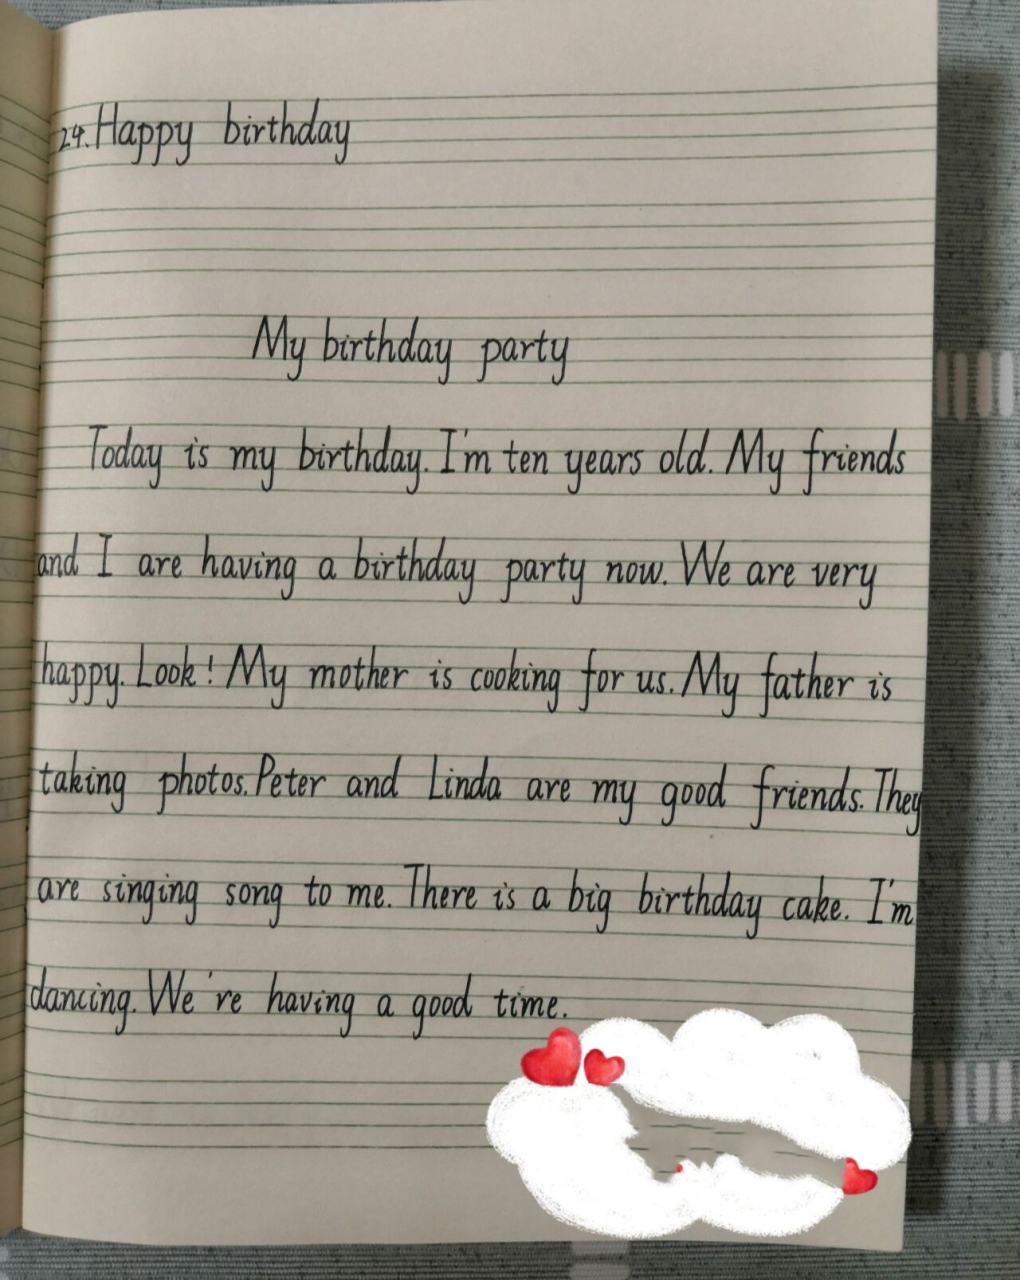 24. Happy birthday
My birthday party
Today is my birthday. I'm ten years old. My friends
and I are having a birthday party now. We are very
happy. Look! My mother is cooking for us. My father is
taking photos. Peter and Linda are my good friends. They
are singing song to me. There is a big birthday cake. I'm
dancing. We're having a good time.